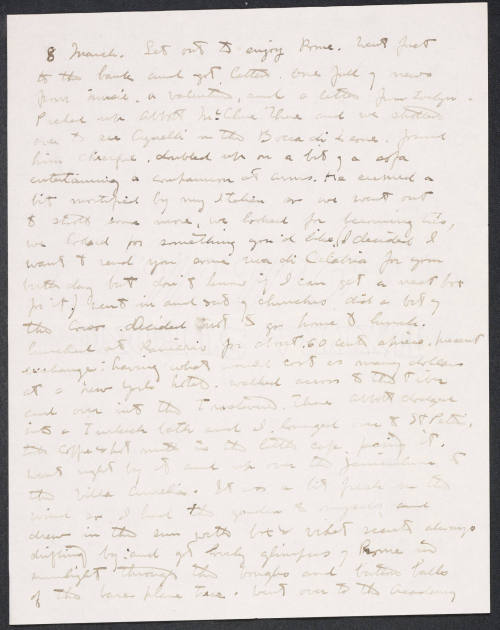 8 March. Set out to enjoy Rome. Went first
to the bank and got letters. One full of news
from , a valentine, and a letter from Evelyn.
Picked up Abbott McClure there and we strolled
over to see Agnelli in the Bocca di Leone. Found
him , doubled up on a bit of a sofa
entertaining a companion at arms. He seemed a
bit mortified by my Italian so we went out
to stroll some more, we looked for ties,
we looked for something you'd like, (I decided I
want to send you some di Calabria for your
birthday but don't know if I can get a nest box
for it) went in and out of churches did a bit of
the Corso. Decided not to go home to lunch.
Lunched at Ranieri's for about .60 cents apiece, present
exchange: having what would cost as many dollars
at a New York hotel. Walked across to the Tiber
and over into the Trastevere. There Abbott dodged
into a Turkish bath and I lounged over to St Peter's.
the coffee & hot milk in the little cafe facing it.
Went right by it and up over the Janiculum to
the Villa Aurelia. It was a bit fresh in the
wind so I had the garden to myself and
drew in the sun with box & violet scents always
drifting by and got lovely glimpses of Rome in
sunlight through the boughs and button balls
of the bare plane tree. Went over to the Academy